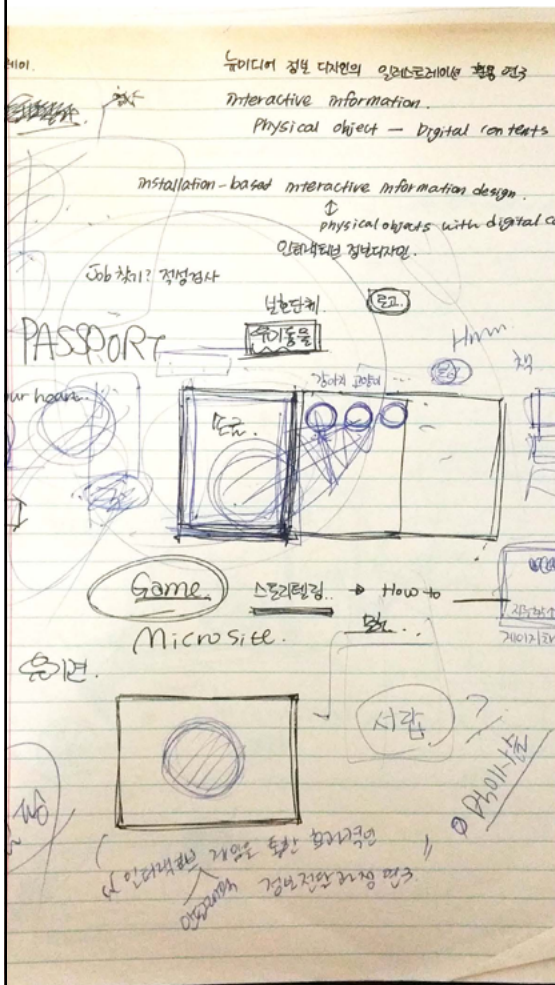 뉴미디어 정보 디자인의 일러스트레이션 활용 연구
interactive information.
Physical object — Digital contents
installation-based interactive information design.
physical objects with digital co
인터랙티브 정보디자인.
Job 찾기? 적성검사
보호단체.
로고.
PASSPORT
유기동물
Hmm.
책.
강아지 고양이 ...
ur heart.
Game
스토리텔링.
How to
Microsite.
유기견.
서랍
?
인터랙티브 게임을 통한 효과적인
정보전달과정 연구.